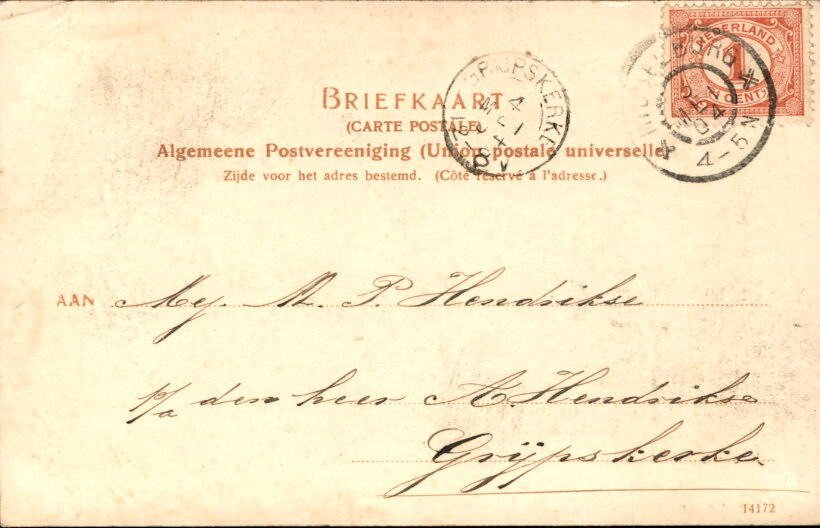 NEDERLAND
1
CENT
MIDDELBURG
4-5N
GRIJPSKERKE
BRIEFKAART
(CARTE POSTALE)
Algemeene Postvereeniging (Union postale universelle)
Zijde voor het adres bestemd. (Côté réservé à l'adresse.)
AAN Mej. M. P. Hendrikse
p/a den heer A. Hendrikse
Grijpskerke.
14172